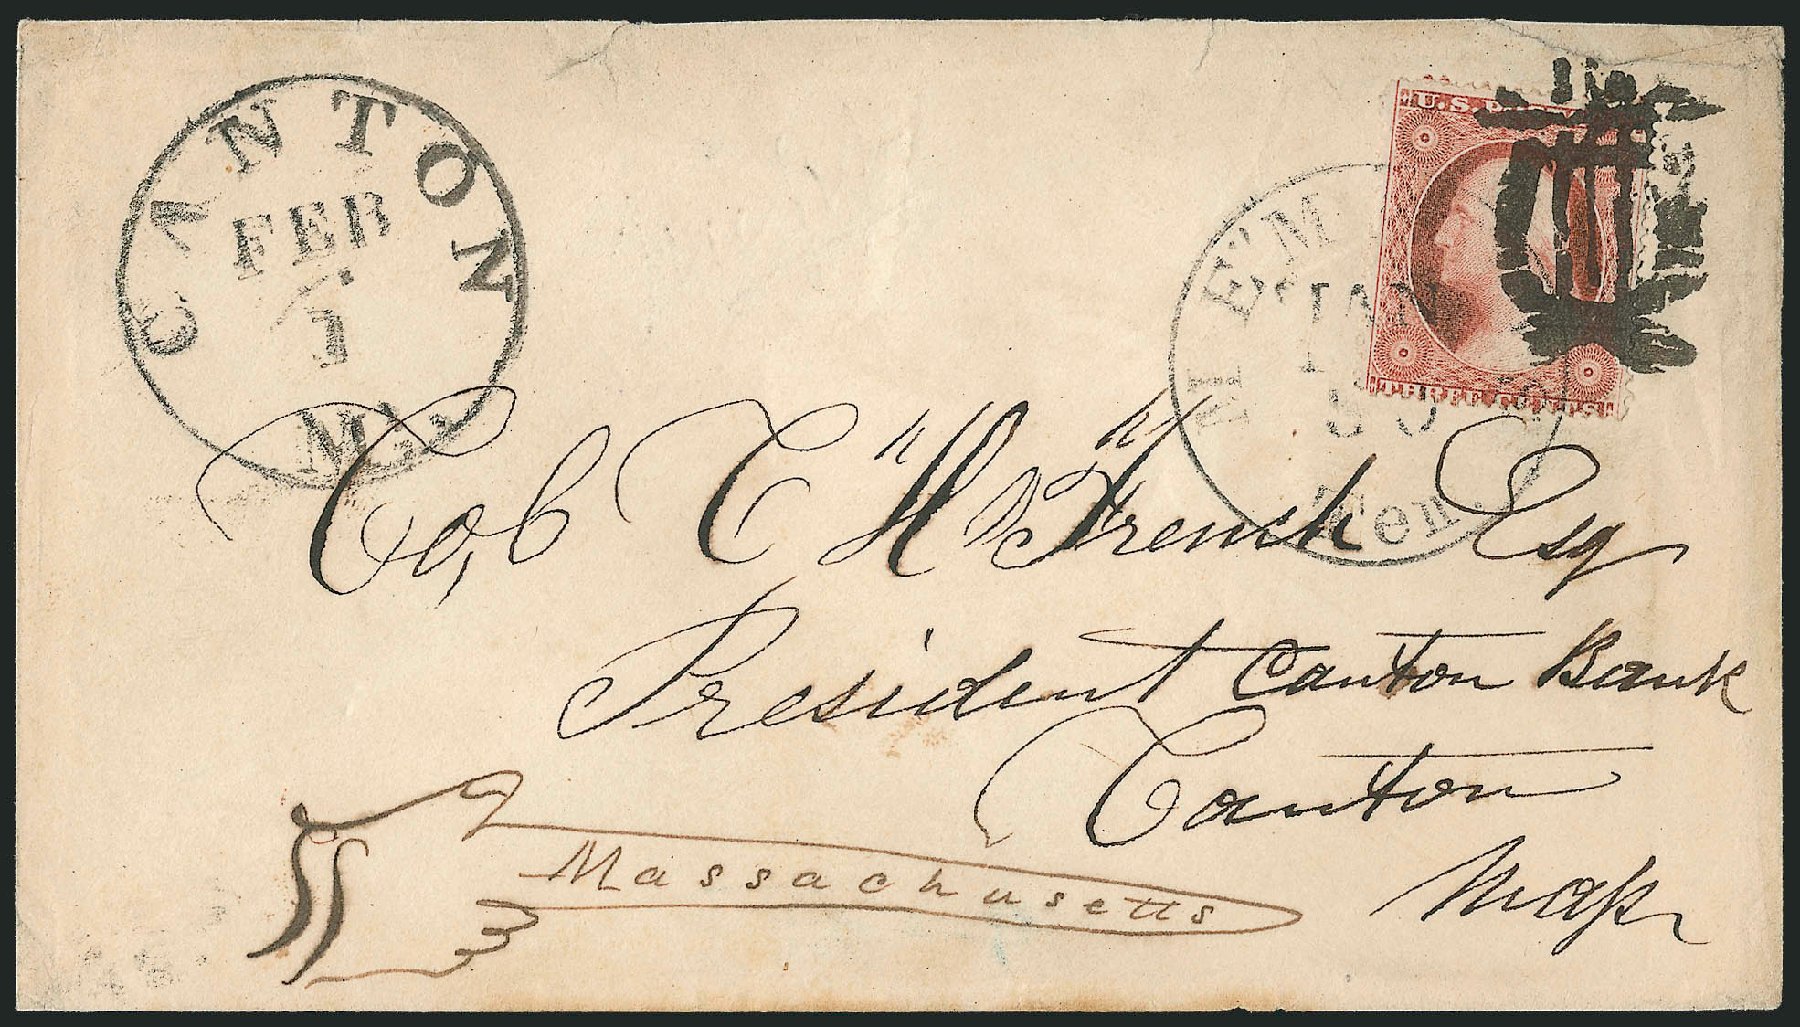 CANTON
FEB
1
Ms.
U.S. PO
MEMP
JAN
THREE CENTS
Ten.
Col, C "H" French Esq
President Canton Bank
Canton
Mass
Massachusetts